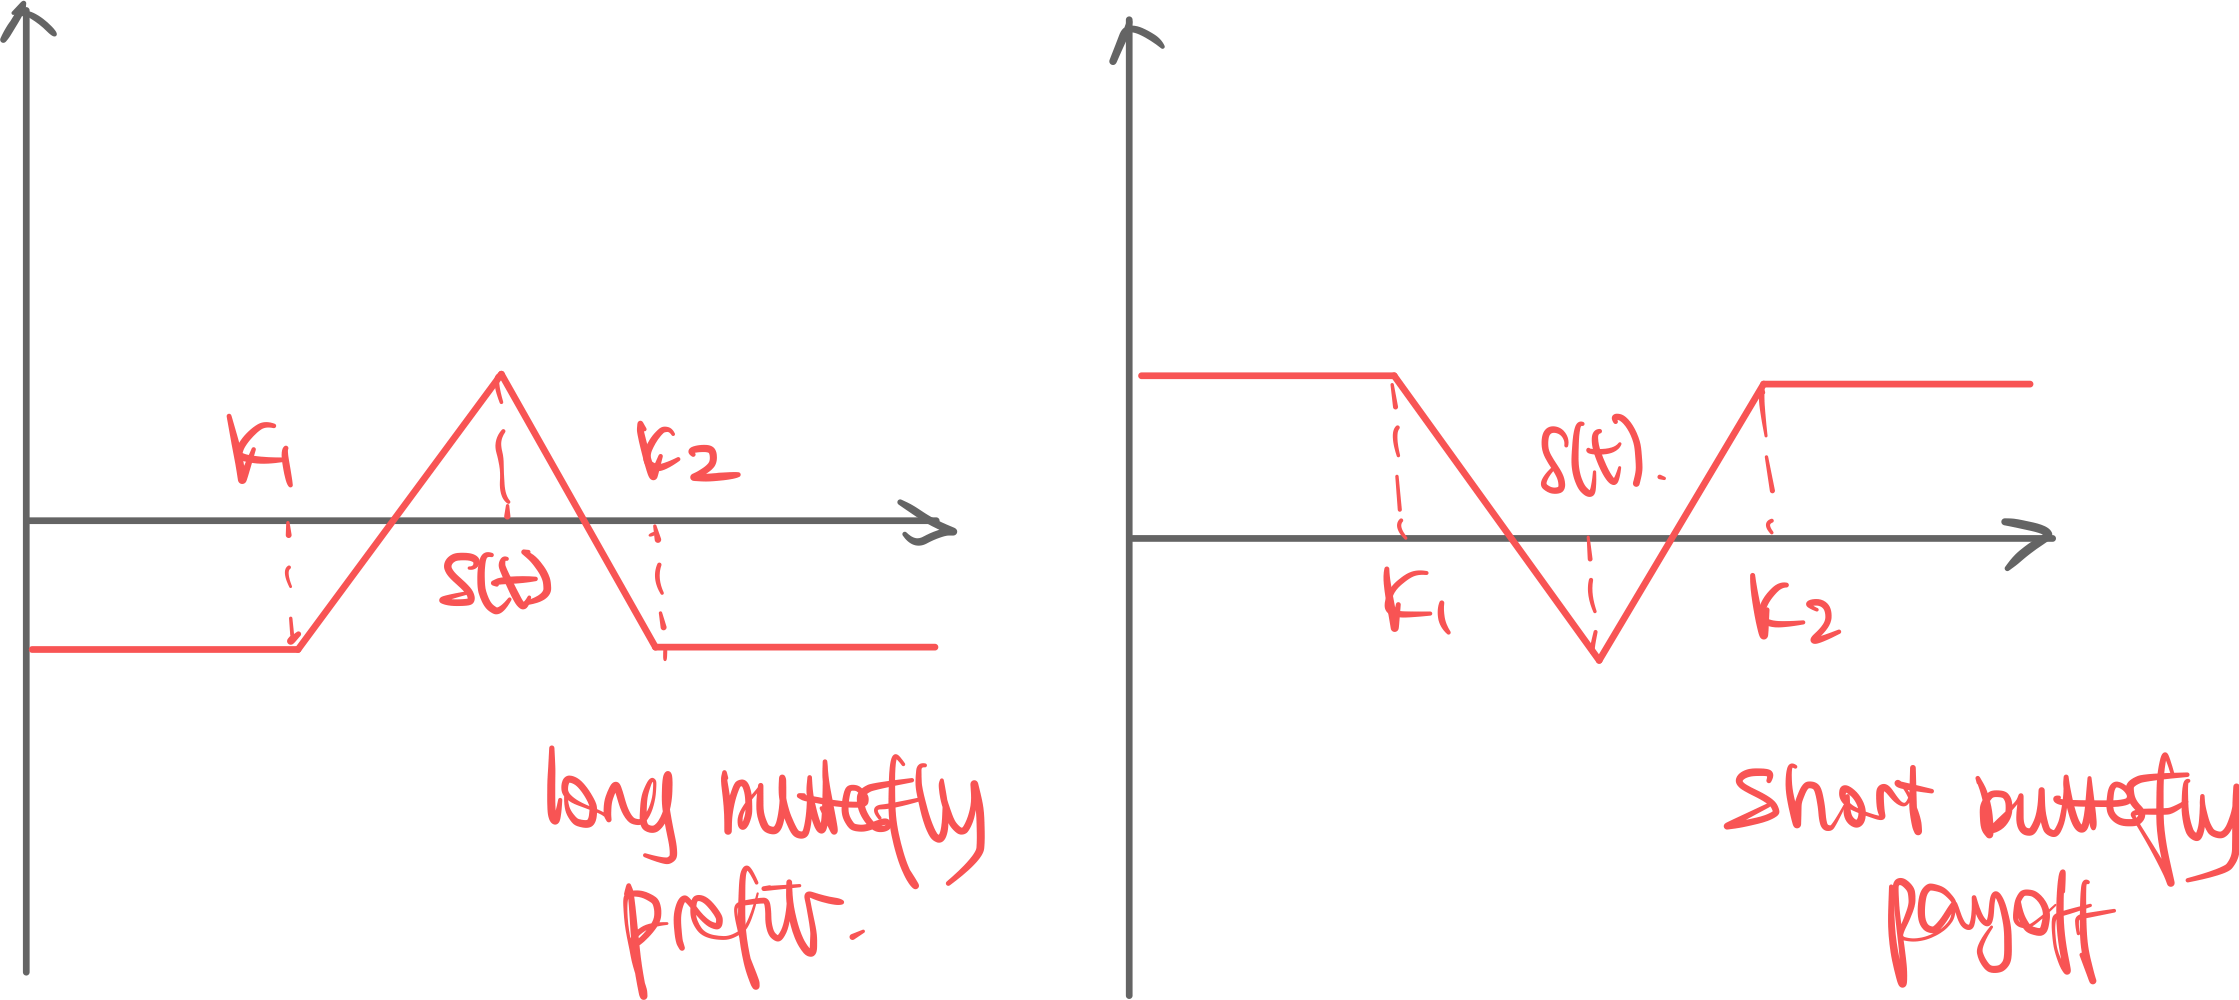 K1
K2
S(t)
long butterfly
profit.
S(t).
K1
K2
short butterfly
payoff